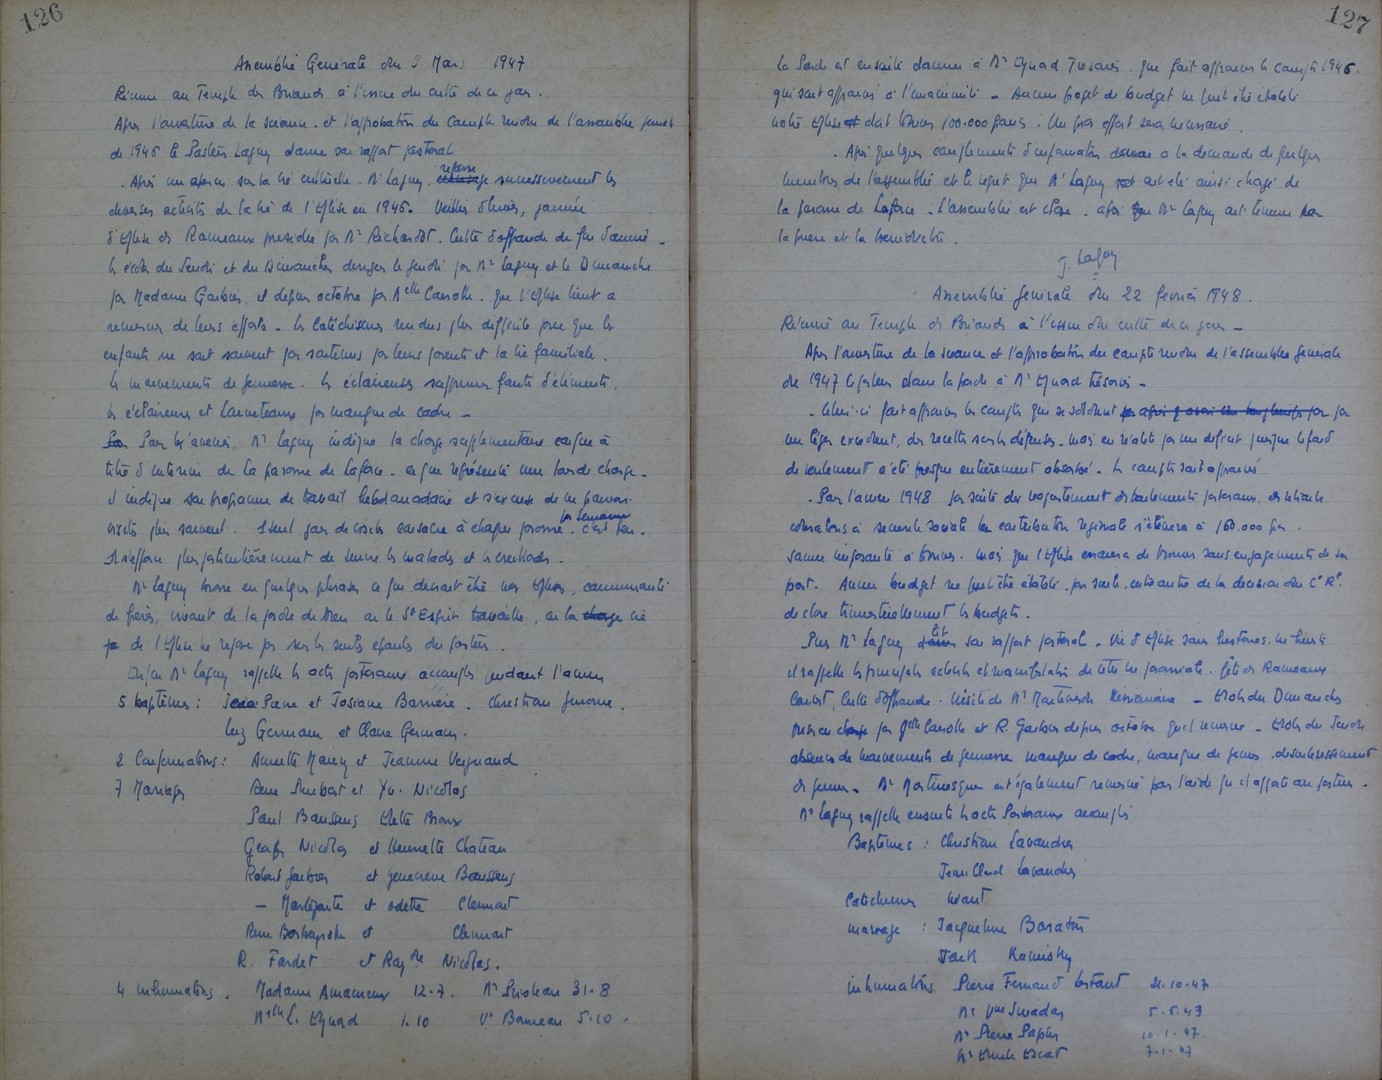 126
Assemblée Générale du 9 Mars 1947
Réunie au Temple des Briands à l'issue du culte de ce jour.
Après l'ouverture de la séance et l'approbation du Compte rendu de l'assemblée générale
de 1946 le Pasteur Laguy donne son rapport pastoral
Après un aperçu sur la vie cultuelle. Mr Laguy repasse successivement les
diverses activités de la vie de l'Eglise en 1946. Veillées d'hiver, journée
d'Eglise des Rameaux présidée par Mr Richardot. Culte d'offrande de fin d'année.
les écoles du Jeudi et du Dimanche dirigées le jeudi par Mr Laguy et le Dimanche
par Madame Garbies et depuis octobre par Melle Carrolle. que l'Eglise tient a
remercier de leurs efforts. les Catéchismes rendus plus difficile parce que les
enfants ne sont souvent pas soutenus par leurs parents et la vie familiale.
les mouvements de jeunesse. les éclaireuses supprimées faute d'éléments.
les éclaireurs et louveteaux par manque de cadre -
Pour l'avenir, Mr Laguy indique la charge supplémentaire exigée à
titre d'interim de la paroisse de Laforce. ce que représente une lourde charge.
il indique son programme de travail hebdomadaire et s'excuse de ne pouvoir
visiter plus souvent. 1 seul jour de visite consacré à chaque paroisse par semaine c'est peu.
Il s'efforce plus particulièrement de suivre les malades et les
Mr Laguy brosse en quelques phrases ce que devrait être nos Eglises, communauté
de frères, vivant de la parole de Dieu où le St Esprit travaille, où la vie
de l'Eglise ne repose pas sur les seules épaules du pasteur.
Enfin Mr Laguy rappelle les actes pastoraux accomplis pendant l'année
5 baptêmes : Jean Pierre et Josiane Barrière. Christian
Luz Germain et Claire Germain.
2 Confirmations : Annette Marcy et Jeanne Vergnaud
7 Mariages Pierre et Yv. Nicolas
Paul Baussens Elette
Nicolas et Henriette Chateau
Robert Garbies et Geneviève Baussens
- et Odette Clermart
René et Clermart
R. Fardet et Raymde Nicolas.
4 inhumations. Madame 12-7. Mr 31-8
Melle L. Eynard 1.10 Ve 5-10.
127
la Parole est ensuite donnée à Mr Eynard Trésorier. que fait approuver les comptes 1946.
qui sont approuvés à l'unanimité - Aucun projet de budget ne peut être établi
notre Eglise doit trouver 100.000 francs. Un gros effort sera nécessaire.
Après quelques compléments d'information donnés a la demande de quelques
membres de l'assemblée et le regret que Mr Laguy ait été ainsi chargé de
la paroisse de Laforce. L'assemblée est close. après que Mr Laguy ait terminé par
la prière et la bénédiction.
J. Laguy
Assemblée générale du 22 février 1948.
Réunie au Temple des Briands à l'issue du culte de ce jour -
Après l'ouverture de la séance et l'approbation du compte rendu de l'assemblée générale
de 1947 le pasteur donne la parole à Mr Eynard trésorier -
- Celui-ci fait approuver les comptes qui se soldent par
un léger excédent, des recettes sur les dépenses. mais en réalité par un déficit puisque le fond
de roulement a été presque entièrement absorbé. les comptes sont approuvés
- Pour l'année 1948 par suite du rajustement des traitements pastoraux, des retraites
cotisations à sécurité sociale la contribution régionale s'élèvera à 160.000 frs.
somme imposante à trouver. mais que l'Eglise essaiera de trouver sans engagements de sa
part. Aucun budget ne peut être établi. par suite, entre autre de la décision du Cl Rl
de clore trimestriellement les budgets.
Puis Mr Laguy lit son rapport pastoral. Vie d'Eglise sans histoires.
il rappelle les principales activités et manifestations de cette vie paroissiale. fête des Rameaux
Culte d'offrande. Visite de Mr Missionnaire - Ecole du Dimanche
prise en charge par Melle Carrolle et R. Garbies depuis octobre qu'il remercie - Ecole du Jeudi
absence de mouvements de jeunesse manque de cadre, manque de jeunes. désintéressement
des jeunes. Mr est également remercié pour l'aide qu'il apporte au pasteur.
Mr Laguy rappelle ensuite les actes Pastoraux accomplis
Baptêmes : Christian Lavandes
Jean Claud Lavandes
Catéchumènes néant
mariage : Jacqueline Baratin
Jack Kaminsky
inhumations Pierre Fernand 21.10-47
Mr 5-5.47
Mr Pierre Papin 10-1-47
Mr Emile Escat 7-1-47